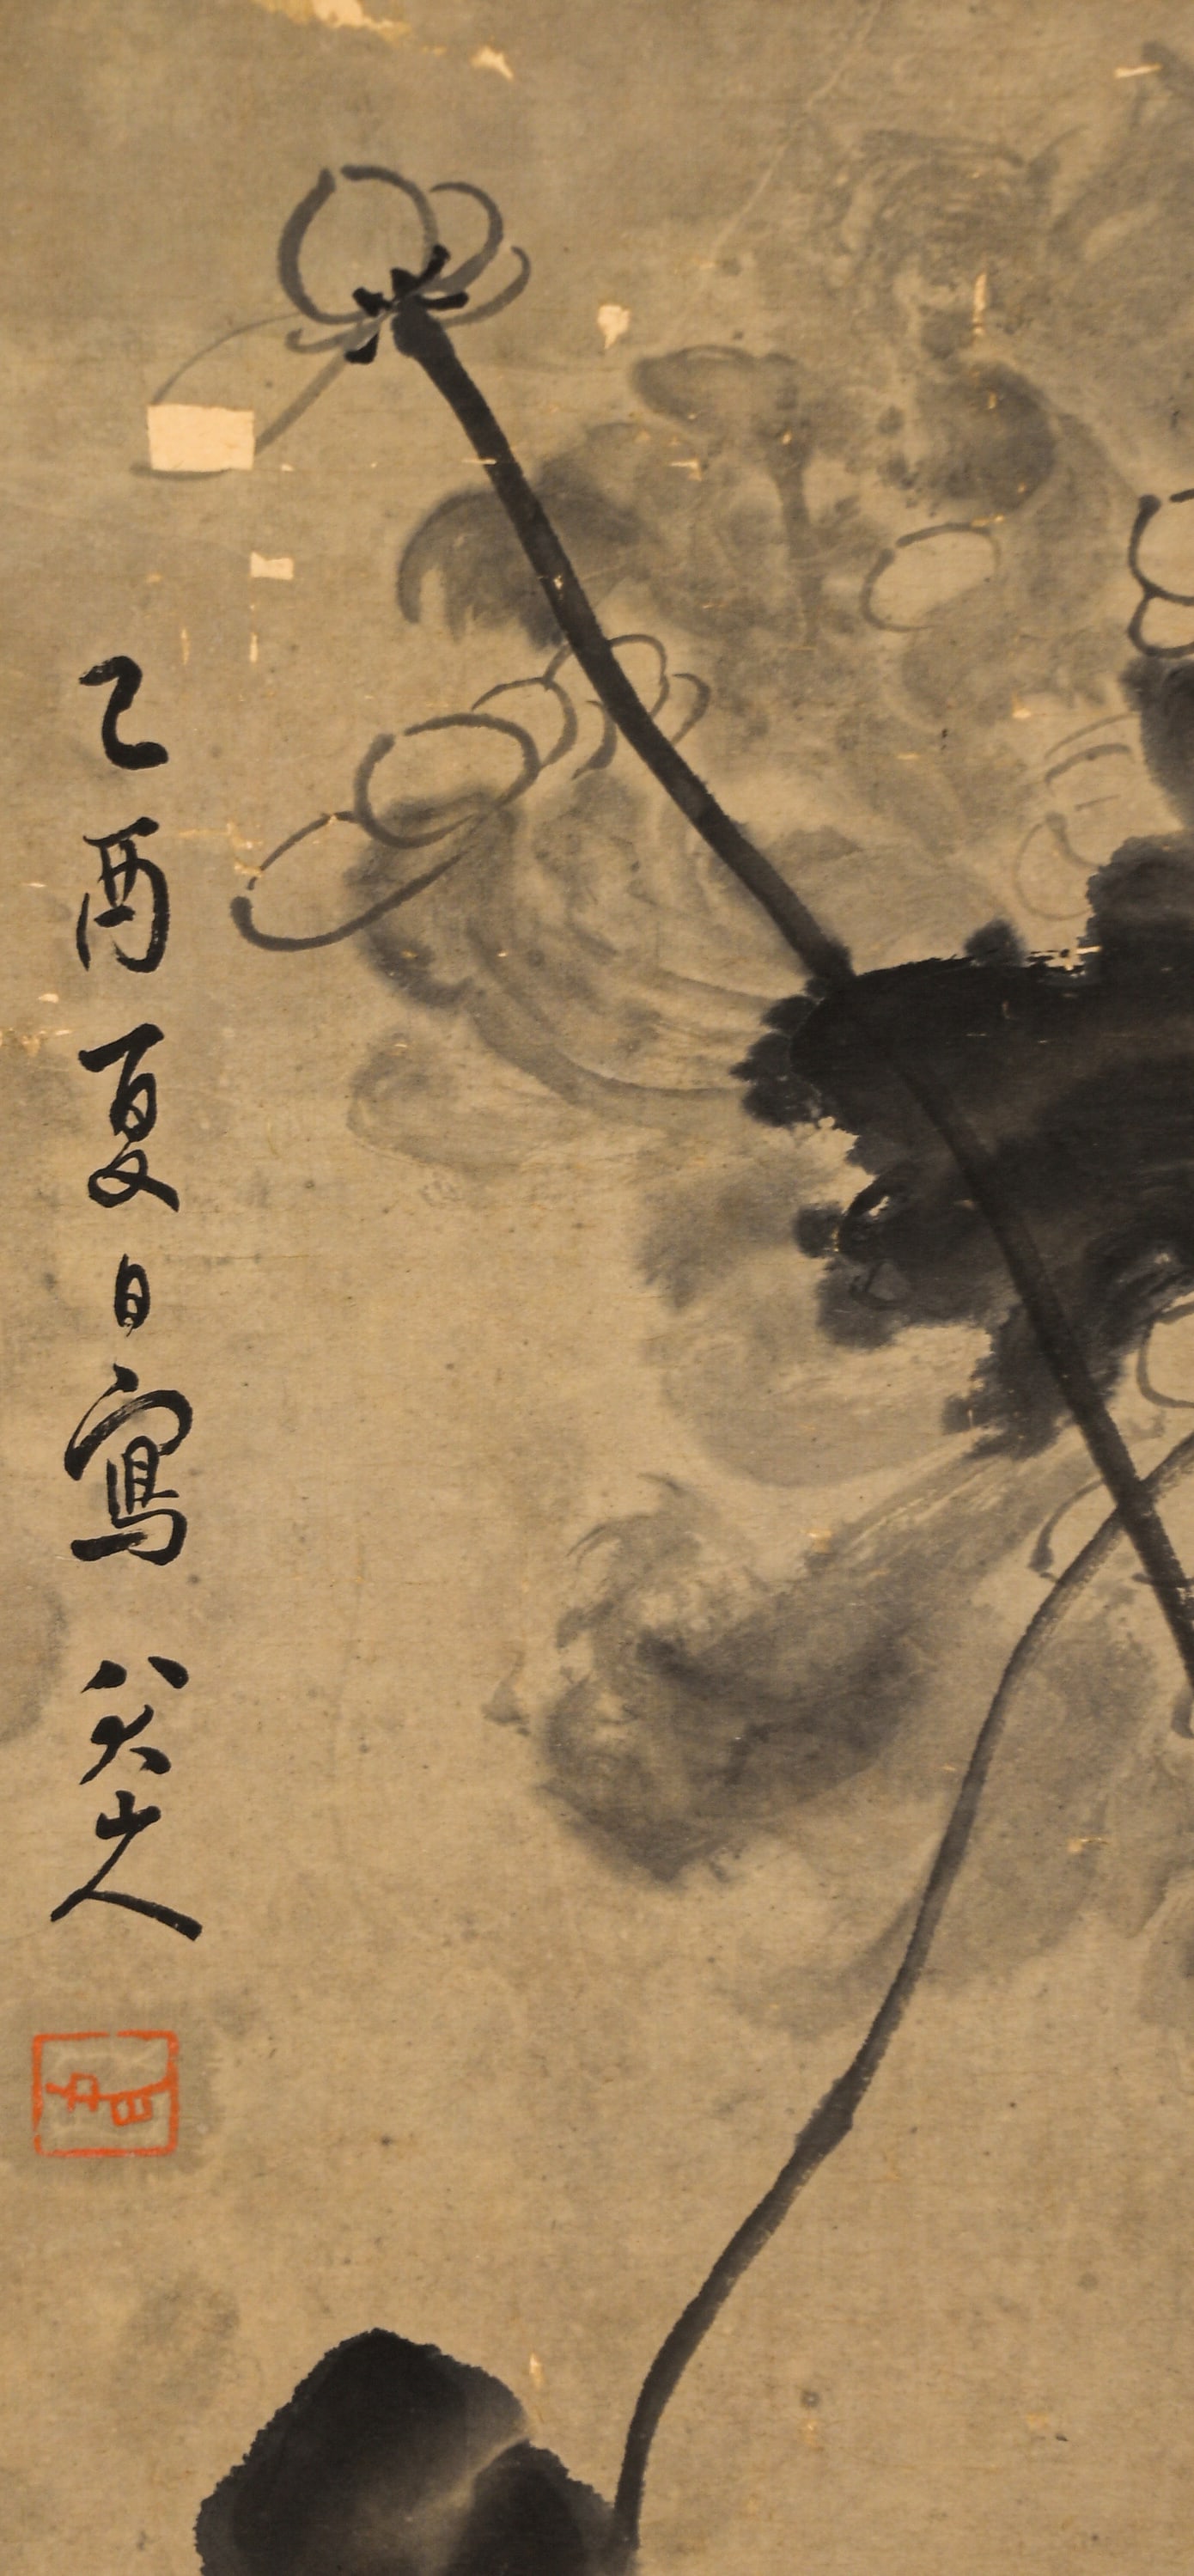 乙酉夏日寫 八大山人